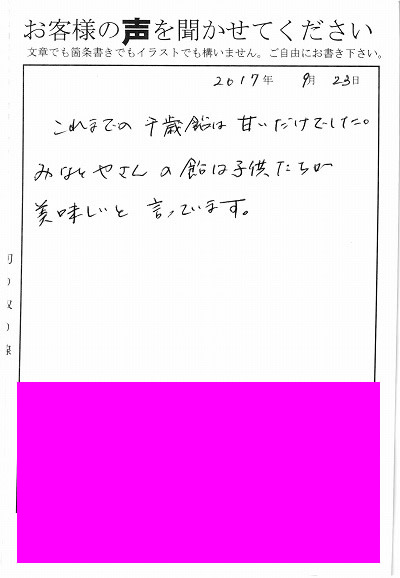 お客様の声を聞かせてください
文章でも箇条書きでもイラストでも構いません。ご自由にお書き下さい。
2017年 9月 23日
これまでの 千歳飴は 甘いだけでした。
みなとやさん の 飴は子供たちが
美味しいと 言っています。
切り取り線